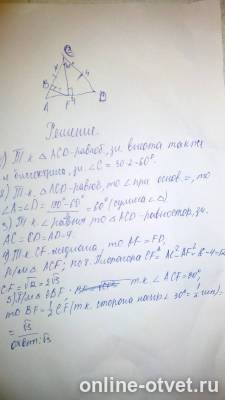 C
B
4
A
F
D
Решение
1) Т.к △ACD-равноб, зн. высота также
и биссектриса, зн. ∠C = 30·2=60°.
2) Т.к. △ACD-равноб, то ∠ при основ =, то
∠A=∠D= 180°-60° = 60° (сумма ∠△)
3) Т.к ∠ равны то △ACD-равностор, зн.
AC=CD=AD=4.
4) Т.к. CF-медиана, то AF=FD,
П/м △ ACF; по т. Пифагора CF²=AC²-AF²
CF=√12=2√3
т.к ∠ACF=30°,
то BF=½CF (т.к. сторона напр ∠30°=½ гип)=
=√3
ответ: √3
online-otvet.ru